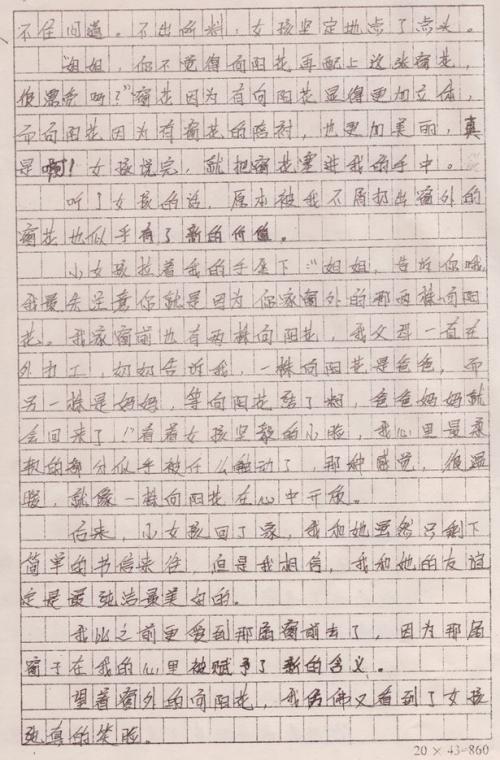 不住问道。不出所料，女孩坚定地点了点头。
“姐姐，你不觉得向阳花再配上这张窗花，
很漂亮吗？”窗花因为有向阳花显得更加立体，
而向阳花因为有窗花的陪衬，也更加美丽，真
是啊！女孩说完，就把窗花塞进我的手中。
听了女孩的话，原本被我不屑扔出窗外的
窗花也似乎有了新的价值。
小女孩拉着我的手坐下：“姐姐，告诉你哦，
我最先注意你就是因为你家窗外的那两株向阳
花。我家窗前也有两株向阳花，我父母一直在
外打工，奶奶告诉我，一株向阳花是爸爸，而
另一株是妈妈，等向阳花结了籽，爸爸妈妈就
会回来了！”看着女孩坚毅的小脸，我心里最柔
软的部分似乎被什么触动了，那种感觉，很温
暖，就像一株向阳花在心中开放。
后来，小女孩回了家，我和她虽然只剩下
简单的书信来往，但是我相信，我和她的友谊
定是最纯洁最美好的。
我比之前更爱到那扇窗前去了，因为那扇
窗子在我的心里被赋予了新的含义。
望着窗外的向阳花，我仿佛又看到了女孩
纯真的笑脸。
20 × 43=860